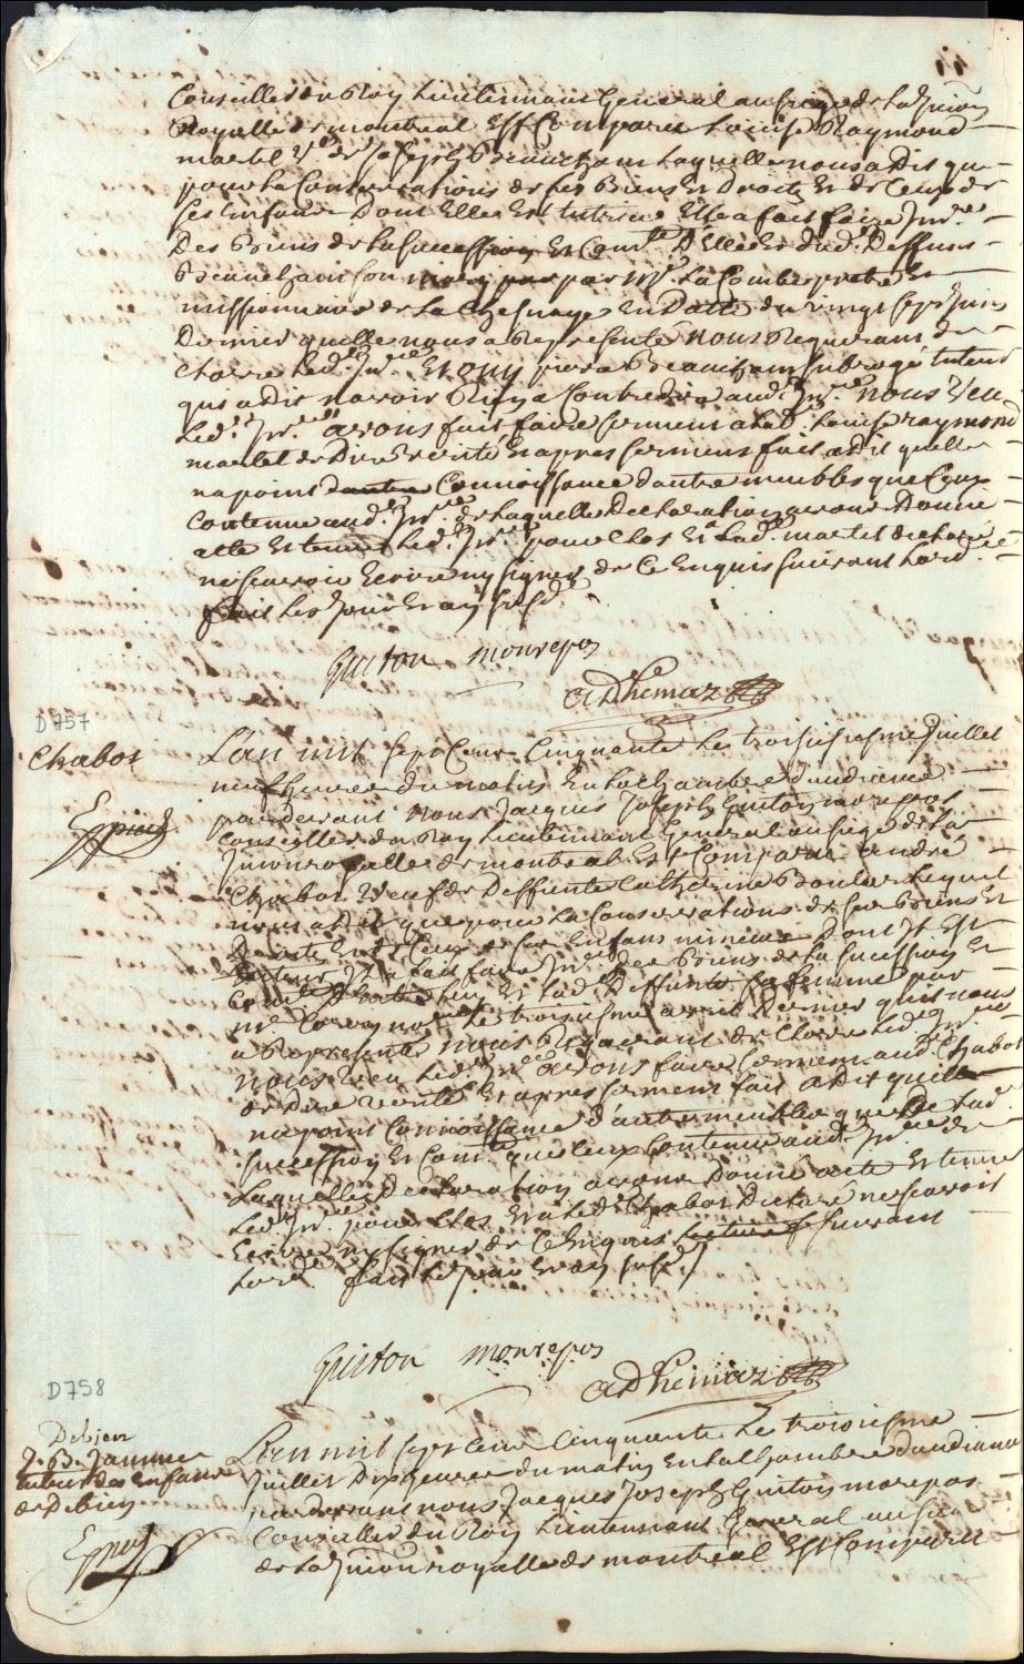 Conseiller du Roy Lieutenant General au siege de la Jurion
Royalle de montreal Est Comparu Louise Raymond
martel Ve de Joseph Beaucham Laquelle nous a dit que
pour la Conservations de ses Biens Et Droits Et de Ceux de
ses Enfans Dont Elle Est tutrice Elle a fait faire Inre
Des Biens de la Succession Et Comte D'Elle Et dud. Deffunt
Beaucham son mary par Mr LaCombe pretre
missionnaire de La Chesnaye En Datte du vingt sept Juin
Dernier quelle nous a Representé nous Requerant de
Clorre Led. Inre Et ouy pierre Beaucham subrogé tuteur
qui a dit n'avoir Rien a Contredire aud. Inre nous Veu
Led. Inre avons fait faire serment a lad. Louise raymond
martel de Dire verité Et apres serment fait a dit quelle
na point Connoissance dautre meubles que Ceux
Contenue aud. Inre de Laquelle Declaration avons Donné
acte Et tenu Led. Inre pour Clos Et a Lad. martel declaré
ne sçavoir Ecrire ny signer de Ce Enquis suivant Lord.ce
fait Les jour Et an susd.
Guiton monrepos
adhemar
D757
Chabot
Expiedé
L'an mil sept Cens Cinquante Le troisiesme Juillet
neuf heures du matin En la Chambre d'audiance
par devant nous Jacques Joseph Guiton monrepos
Conseiller du Roy Lieutennant General au siege de La
Jurion royalle de montreal Est Comparu andré
Chabot Veuf de Deffunte Catherine Boulard Lequel
nous a Dit que pour La Conservations de ses Biens Et
Droits Et de Ceux de ses Enfans mineurs Dont Il Est
tuteur Il a fait faire Inre Des Biens de la Succession Et
Comte D'Entre Luy Et Lad. Deffunte sa femme par
mr no.re Le troisiesme avril Dernier quil nous
a Representé nous Requerant de Clorre Led. Inre
nous Veu Led. Inre avons faire serment aud. Chabot
de Dire verité Et apres serment fait a Dit quil
na point Connoissance d'autre meubles De Lad.
Succession Et Comte que Ceux Contenue aud. Inre de
Laquelle Declaration avons Donné acte Et tenu
Led. Inre pour Clos Et a Led. Chabot Declaré ne sçavoir
Ecrire ny signer de Ce Enquis Lecture suivant
Lord. fait Les jour Et an susd.
Guiton monrepos
adhemar
D758
Debien
J. B. Jaunne
tuteur des Enfans
de Debien
Expié
L'an mil sept Cens Cinquante Le troisiesme
Juillet Dix heures du matin En la Chambre daudiance
par devant nous Jacques Joseph Guiton monrepos
Conseiller du Roy Lieutennant General au siege
de la Jurion royalle de montreal Est Comparu